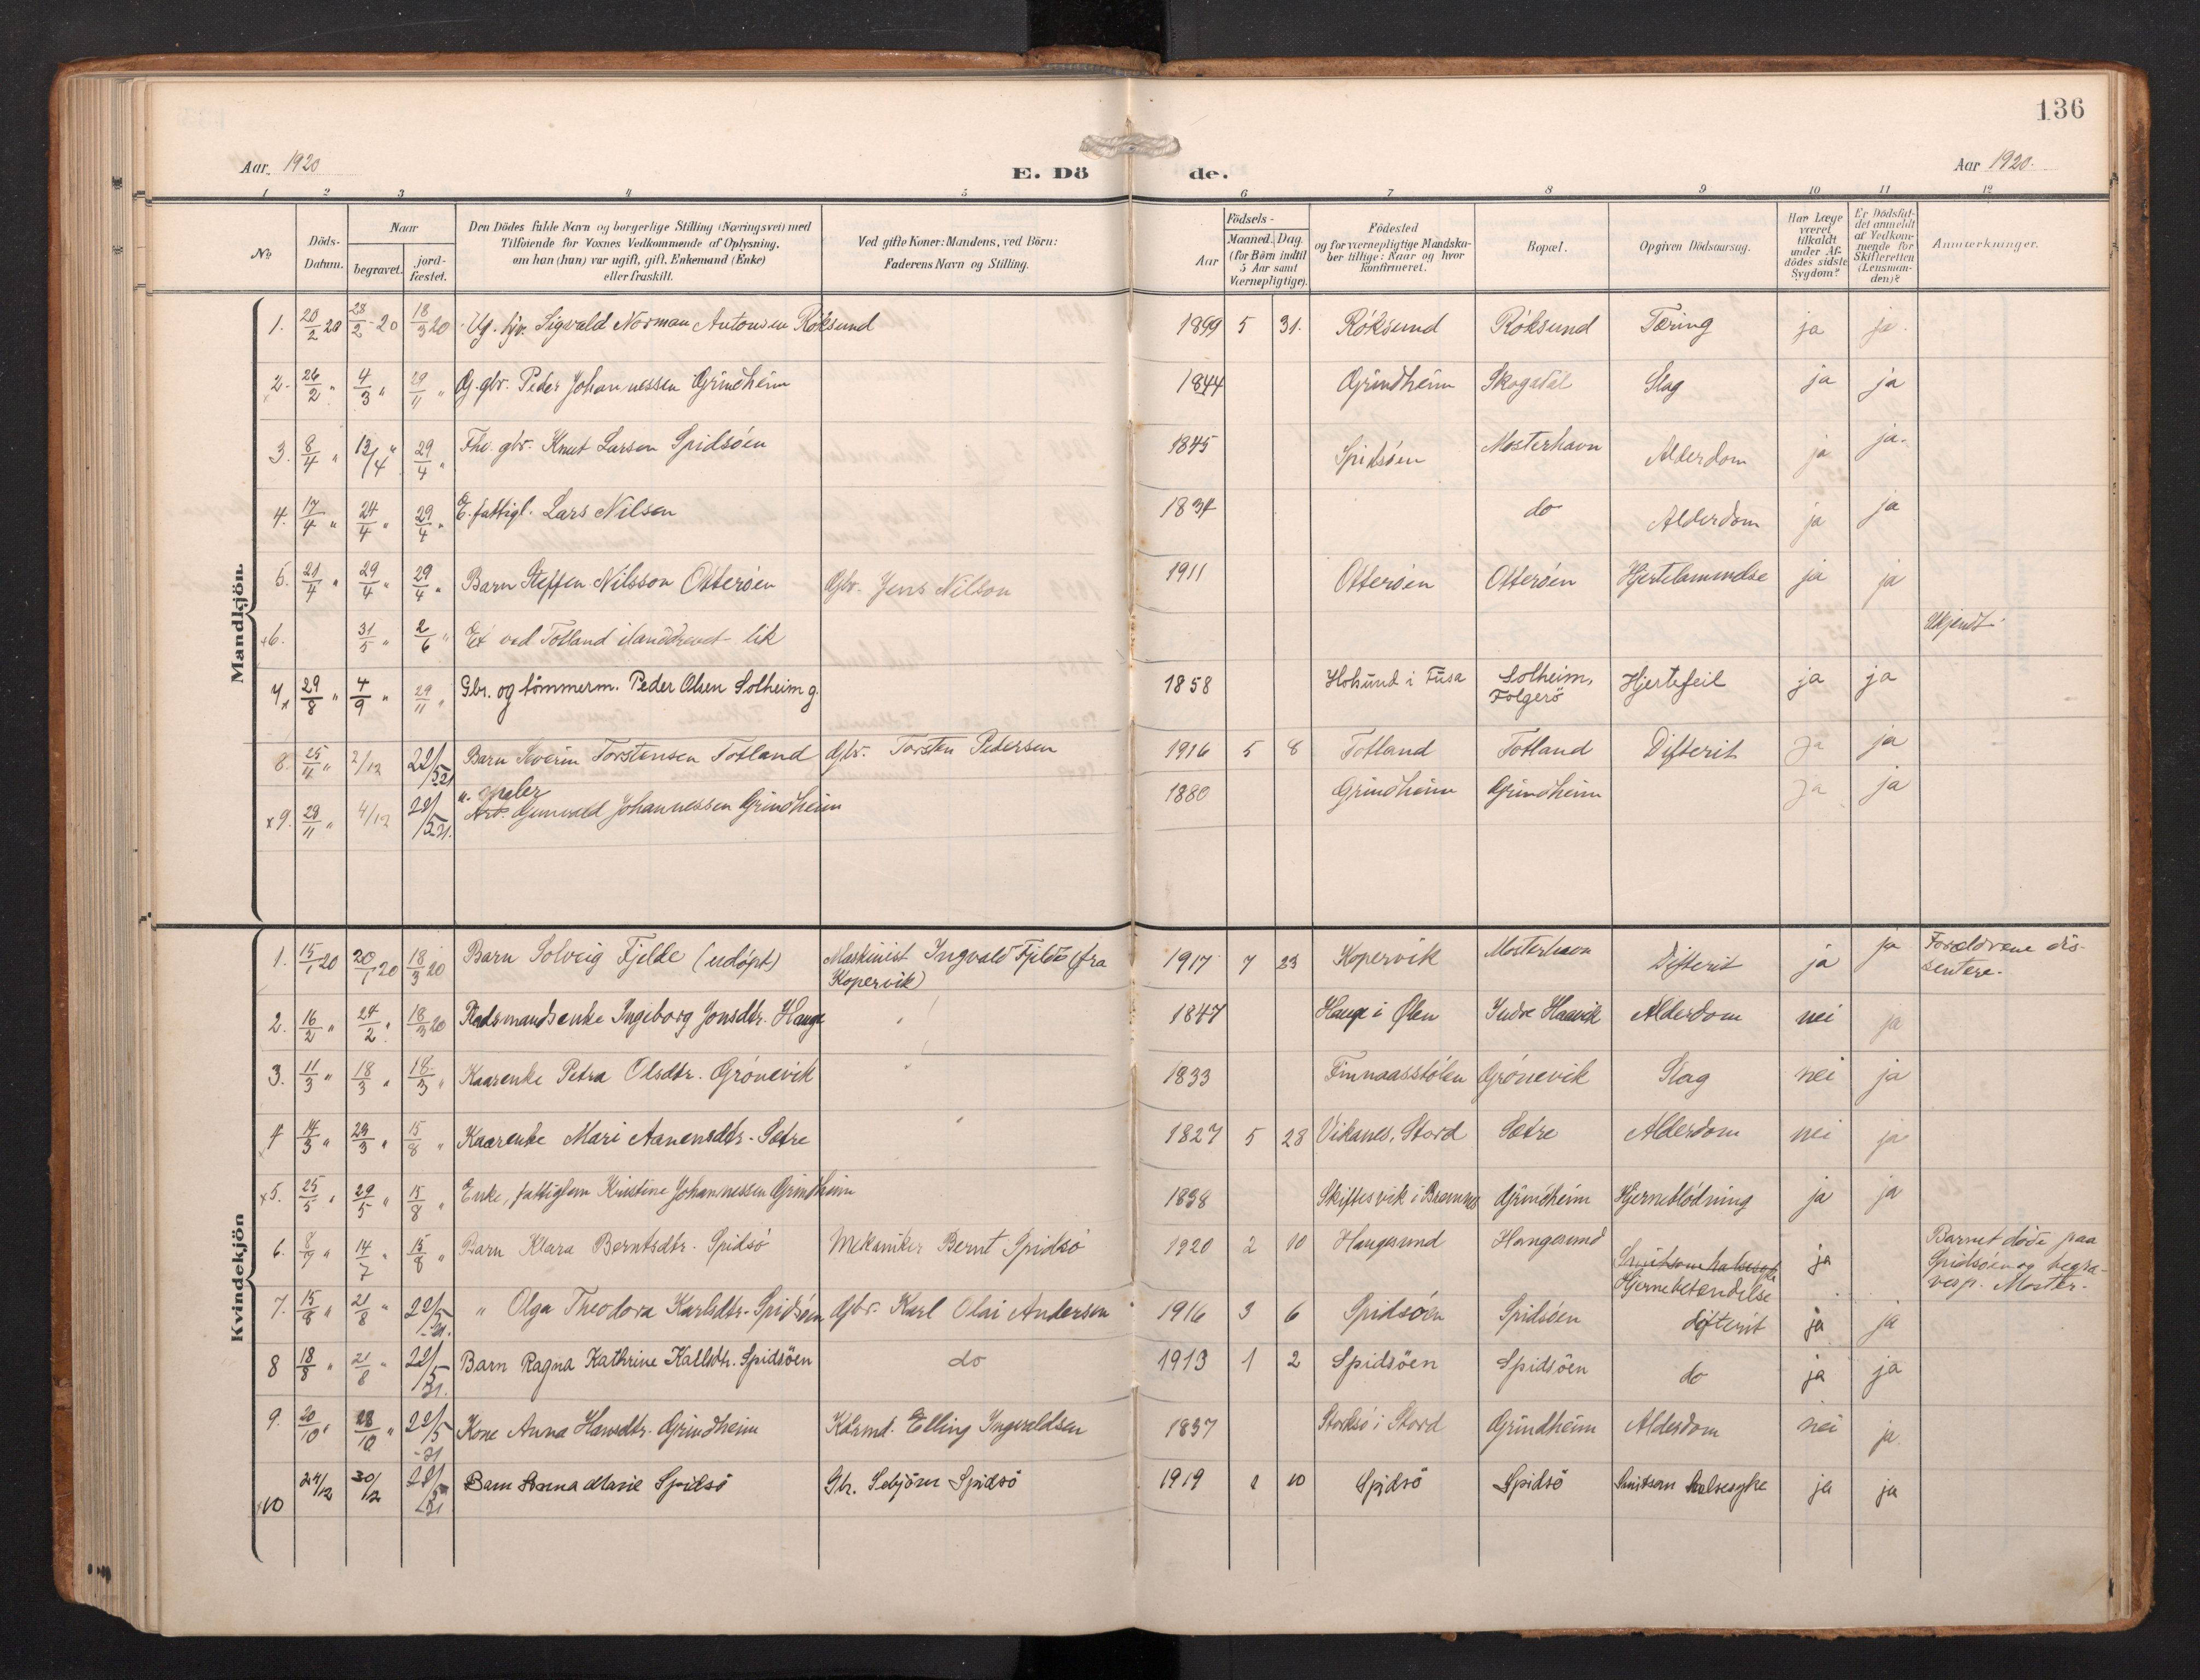 136
Aar. 1920
E. Dö de.
Aar 1920.
1 2 3 4 5 6 7 8 9 10 11 12
No.
Döds-Datum.
Naar
begravet.
jord-fæstet.
Den Dödes fulde Navn og borgerlige Stilling (Næringsvei) med
Tilföiende for Voxnes Vedkommende af Oplysning,
om han (hun) var ugift, gift, Enkemand (Enke)
eller fraskilt.
Ved gifte Koner: Mandens, ved Börn:
Faderens Navn og Stilling.
Födsels-
Aar
Maaned. Dag.
(for Börn indtil
5 Aar samt
Værnepligtige).
Födested
og for værnepligtige Mandska-
ber tillige: Naar og hvor
konfirmeret.
Bopæl.
Opgiven Dödsaarsag.
Har Læge
været
tilkaldt
under Af-
dödes sidste
Sygdom?
Er Dödsfal-
det anmeldt
af Vedkom-
mende for
Skifteretten
(Lensman-
den)?
Anmærkninger.
Mandkjön.
1. 20/2 20 28/2 - 20 18/3 20 Ug. Sigvald Norman Antonsen Röksund 1899 5 31. Röksund Röksund Tæring ja ja.
2. 26/2 " 4/3 " 29/11 " G. gbr. Peder Johannessen Grindheim 1844 Grindheim Skogadal Slag ja ja
3. 8/4 " 13/4 " 29/4 " Fhv. gbr. Knut Larsen Spidsöen 1845 Spidsöen Mosterhavn Alderdom ja ja.
4. 17/4 " 24/4 " 29/4 " E. fattigl. Lars Nilsen 1834 do Alderdom ja ja
5. 21/4 " 29/4 " 29/4 " Barn Steffen Nilsson Otteröen Gbr. Jens Nilson 1911 Otteröen Otteröen Hjertelammelse ja ja
x6. 31/5 " 2/6 " Et ved Totland ilanddrevet lik Ukjendt.
7x 29/8 " 4/9 " 29/11 " Gbr. og tömmerm. Peder Olsen Solheim g. 1858 Hohund i Fusa Solheim, Folgerö Hjertefeil ja ja
8. 25/11 " 2/12 22/5 21 Barn Severin Torstensen Totland Gbr. Torsten Pedersen 1916 5 8 Totland Totland Difterit ja ja
x9. 29/11 " 4/12 22/5 21. u. maler Arb. Gunvald Johannessen Grindheim 1880 Grindheim Grindheim ja ja
Kvindekjön
1. 15/1 20 20/1 20 18/3 20 Barn Solveig Fjelde (udöpt) Maskinist Ingvald Fjelde (fra Kopervik) 1917 7 23 Kopervik Mosterhavn Difterit ja ja Forældrene dis-sentere.
2. 16/2 " 24/2 " 18/3 20 Pladsmandsenke Ingeborg Jonsdtr. Hauge 1847 Hauge i Ølen Indre Haavik Alderdom nei ja
3. 11/3 " 18/3 " 18/3 " Kaarenke Petra Olsdtr. Grönevik 1833 Finnaasstölen Grönevik Slag nei ja
4 14/3 " 23/3 " 15/8 " Kaarenke Mari Aanensdtr. Sætre 1827 5 28 Vikanes, Stord Sætre Alderdom nei ja
x5. 25/5 " 29/5 " 15/8 " Enke, fattiglem Kristine Johannessen Grindheim 1838 Skiftesvik i Bremnes Grindheim Hjerneblödning ja ja
6. 8/7 " 14/7 " 15/8 " Barn Klara Berntsdtr. Spidsö Mekaniker Bernt Spidsö 1920 2 10 Haugesund Haugesund Smitsom halssyke Hjernebetændelse ja Barnet döde paa Spidsöen og begra-ves p. Moster.
7. 15/8 " 21/8 " 22/5 -21. " Olga Theodora Karlsdtr. Spidsöen Gbr. Karl Olai Andersen 1916 3 6 Spidsöen Spidsöen difterit ja ja
8 18/8 " 21/8 " 22/5 21. Barn Ragna Kathrine Kallsdtr. Spidsöen do 1913 1 2 Spidsöen Spidsöen do ja ja
9. 20/10 " 28/10 " 22/5 -21 Kone Anna Hansdtr. Grindheim Kårmd. Elling Ingvaldsen 1837 Stoksö i Stord Grindheim Alderdom nei ja.
x10 24/12 30/12 22/5 21 Barn Anna Marie Spidsö Gbr. Sebjörn Spidsö 1919 1 10 Spidsö Spidsö Smitsom halssyke ja ja